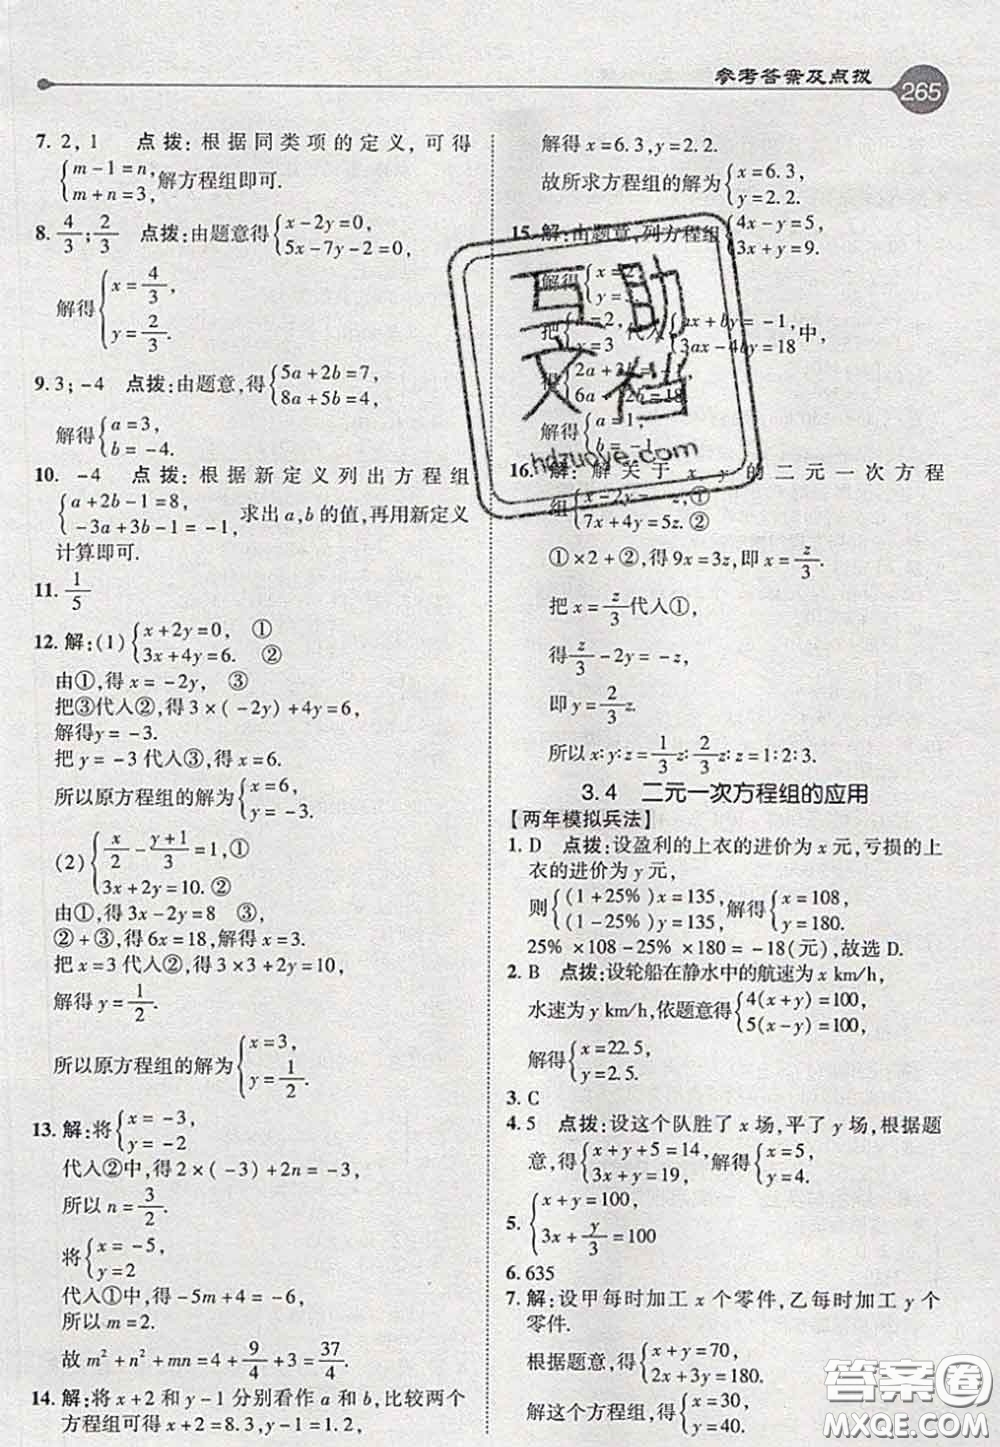 参考答案及点拨
265
7. 2, 1 点拨:根据同类项的定义,可得
{m-1=n,
m+n=3, 解方程组即可.
8. 4/3; 2/3 点拨:由题意得{x-2y=0,
5x-7y-2=0,
解得{x=4/3,
y=2/3.
9. 3; -4 点拨:由题意,得{5a+2b=7,
8a+5b=4,
解得{a=3,
b=-4.
10. -4 点拨:根据新定义列出方程组
{a+2b-1=8,
-3a+3b-1=-1, 求出a,b的值,再用新定义
计算即可.
11. 1/5
12. 解:(1){x+2y=0, ①
3x+4y=6. ②
由①,得x=-2y, ③
把③代入②,得3×(-2y)+4y=6,
解得y=-3.
把y=-3代入③,得x=6.
所以原方程组的解为{x=6,
y=-3.
(2){x/2-(y+1)/3=1,①
3x+2y=10. ②
由①,得3x-2y=8 ③,
②+③,得6x=18,解得x=3.
把x=3代入②,得3×3+2y=10,
解得y=1/2.
所以原方程组的解为{x=3,
y=1/2.
13. 解:将{x=-3,
y=-2
代入②中,得2×(-3)+2n=-3,
所以n=3/2.
将{x=-5,
y=2
代入①中,得-5m+4=-6,
所以m=2.
故m²+n²+mn=4+9/4+3=37/4.
14. 解:将x+2和y-1分别看作a和b,比较两个
方程组可得x+2=8.3,y-1=1.2,
解得x=6.3,y=2.2.
故所求方程组的解为{x=6.3,
y=2.2.
15. 解:由题意,列方程组{4x-y=5,
3x+y=9.
解得{x=2,
y=3.
把{x=2,
y=3 代入{ax+by=-1,
3ax-4by=18 中,
得{2a+3b=-1,
6a-12b=18.
解得{a=1,
b=-1.
16. 解:解关于x,y的二元一次方程
组{x-2y=-z,①
7x+4y=5z. ②
①×2+②,得9x=3z,即x=z/3.
把x=z/3代入①,
得z/3-2y=-z,
即y=2/3z.
所以x:y:z=1/3z:2/3z:z=1:2:3.
3.4 二元一次方程组的应用
【两年模拟兵法】
1. D 点拨:设盈利的上衣的进价为x元,亏损的上
衣的进价为y元,
则{(1+25%)x=135,
(1-25%)y=135, 解得{x=108,
y=180.
25%×108-25%×180=-18(元),故选D.
2. B 点拨:设轮船在静水中的航速为x km/h,
水速为y km/h,依题意得{4(x+y)=100,
5(x-y)=100,
解得{x=22.5,
y=2.5.
3. C
4. 5 点拨:设这个队胜了x场,平了y场,根据题
意,得{x+y+5=14,
3x+y=19, 解得{x=5,
y=4.
5. {x+y=100,
3x+y/3=100
6. 635
7. 解:设甲每时加工x个零件,乙每时加工y个
零件.
根据题意,得{x+y=70,
解这个方程组,得{x=30,
y=40.
互助
文档
hdzuoye.com
答案圈
MXQE.COM